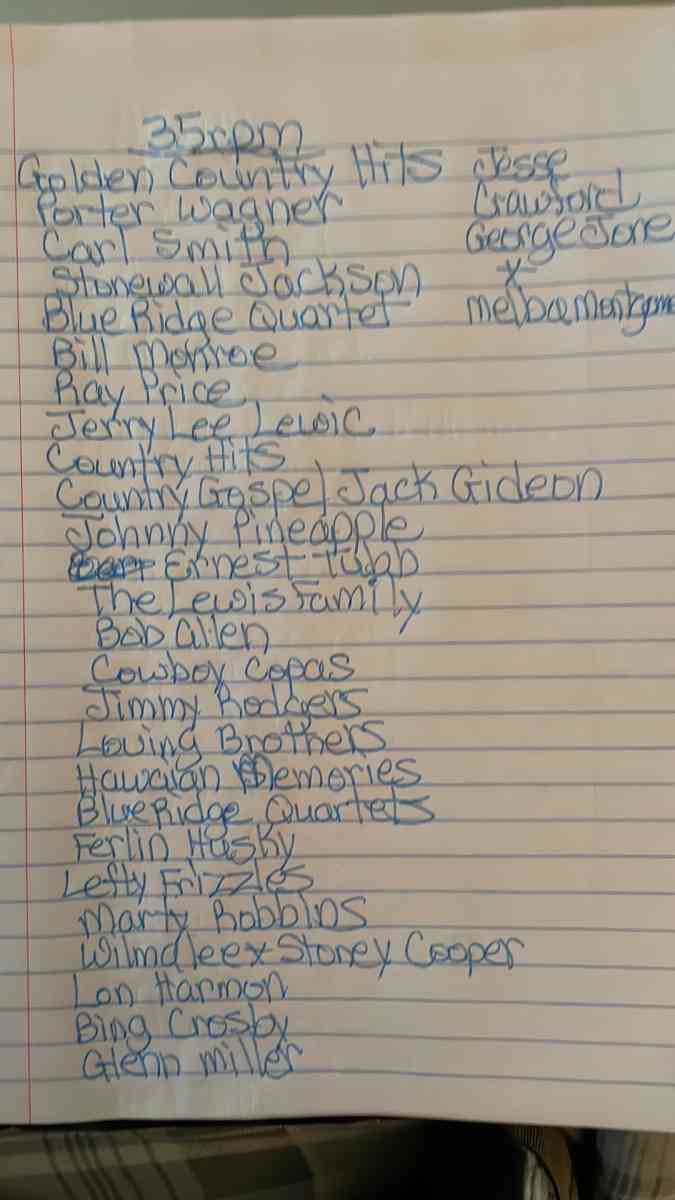 35rpm
Golden Country Hits
Porter Wagner
Carl Smith
Stonewall Jackson
Blue Ridge Quartet
Bill Monroe
Ray Price
Jerry Lee Lewic
Country Hits
Country Gospel Jack Gideon
Johnny Pineapple
Ernest Tubb
The Lewis Family
Bob Allen
Cowboy Copas
Jimmy Rodgers
Loving Brothers
Hawaian Memories
Blue Ridge Quartets
Ferlin Husky
Lefty Frizzles
Marty Robbins
Wilmalee x Stoney Cooper
Lon Harmon
Bing Crosby
Glenn miller
Jesse
Crawford
George Jone
x
melba Montgome